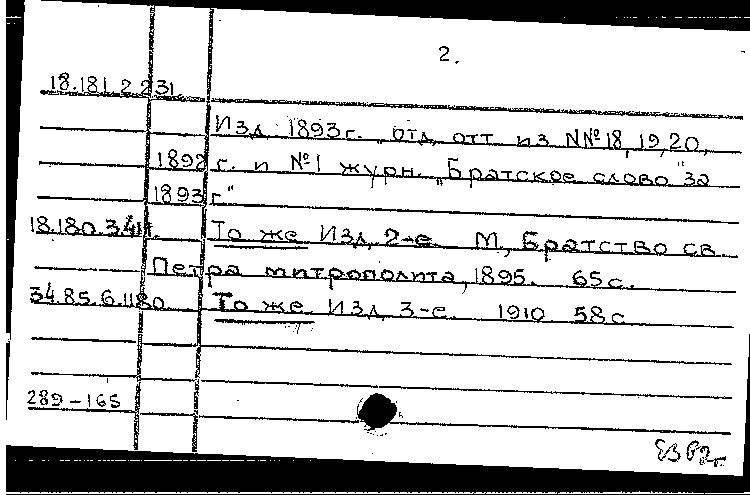 2.
18.181.2.231.
Изд. 1893 г. „отд. отт. из NN° 18, 19, 20,
1892 г. и N° 1 журн. „Братское слово" за
1893 г."
18.180.3.411. То же. Изд. 2-е. М., Братство св.
Петра митрополита, 1895. 65 с.
34.85.6.1180 То же. Изд. 3-е. 1910 58 с.
289-165